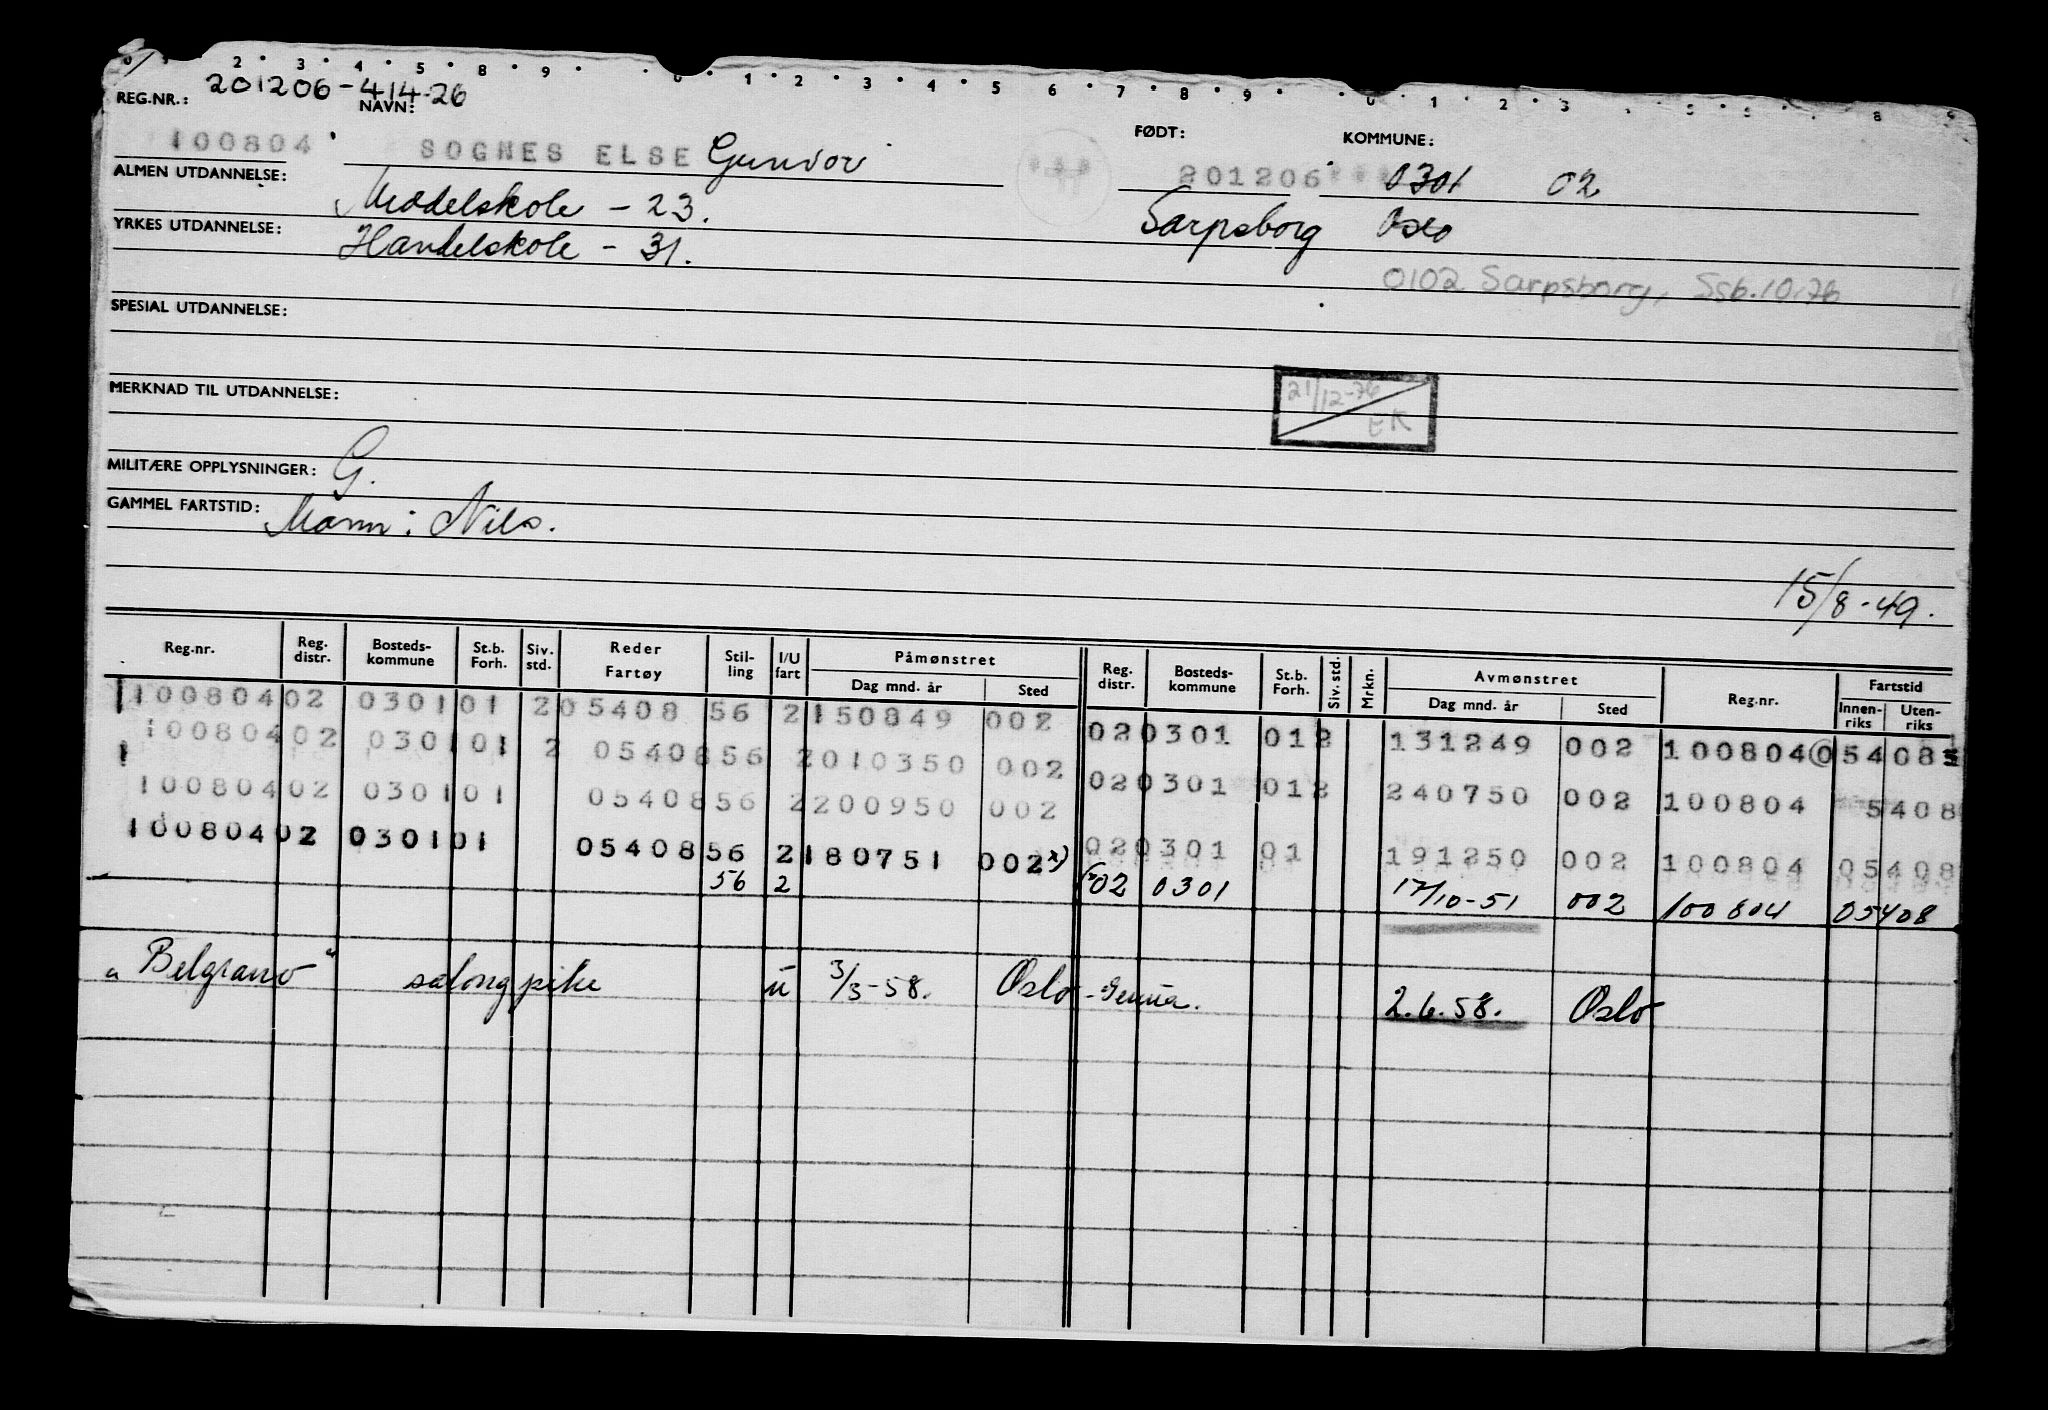 2 3 4 5 8 9 0 1 2 3 4 5 6 7 8 9 0 1 2 3
201206-414-26
REG.NR.: NAVN: FØDT: KOMMUNE:
100804 SOGNES ELSE Gunvor 201206 0301 02
ALMEN UTDANNELSE: Middelskole - 23. Sarpsborg Oslo
YRKES UTDANNELSE: Handelskole - 31.
0102 Sarpsborg, Ssb.10.76
SPESIAL UTDANNELSE:
MERKNAD TIL UTDANNELSE:
21/12-76
EK
MILITÆRE OPPLYSNINGER: G.
GAMMEL FARTSTID: Mann: Nils.
15/8-49.
Reg.nr. Reg. distr. Bosteds-kommune St.b. Forh. Siv. std. Reder Fartøy Stil-ling I/U fart Påmønstret Dag mnd. år Sted Reg. distr. Bosteds-kommune St.b. Forh. Siv. std. Mrkn. Avmønstret Dag mnd. år Sted Reg.nr. Fartstid Innen-riks Uten-riks
100804 02 0301 01 2 05408 56 2 150849 002 02 0301 01 2 131249 002 100804 05408
100804 02 0301 01 2 05408 56 2 010350 002 02 0301 01 2 240750 002 100804 5408
100804 02 0301 01 05408 56 2 200950 002 02 0301 01 191250 002 100804 05408
100804 02 0301 01 05408 56 2 180751 002 x)
56 2 (x 02 0301 17/10-51 002 100804 05408
"Belgrano" salongpike u 3/3-58. Oslo - Genua. 2.6.58. Oslo